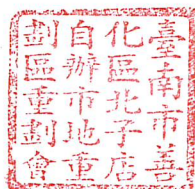 臺南市善
化區北子店
自辦市地重
劃區重劃會